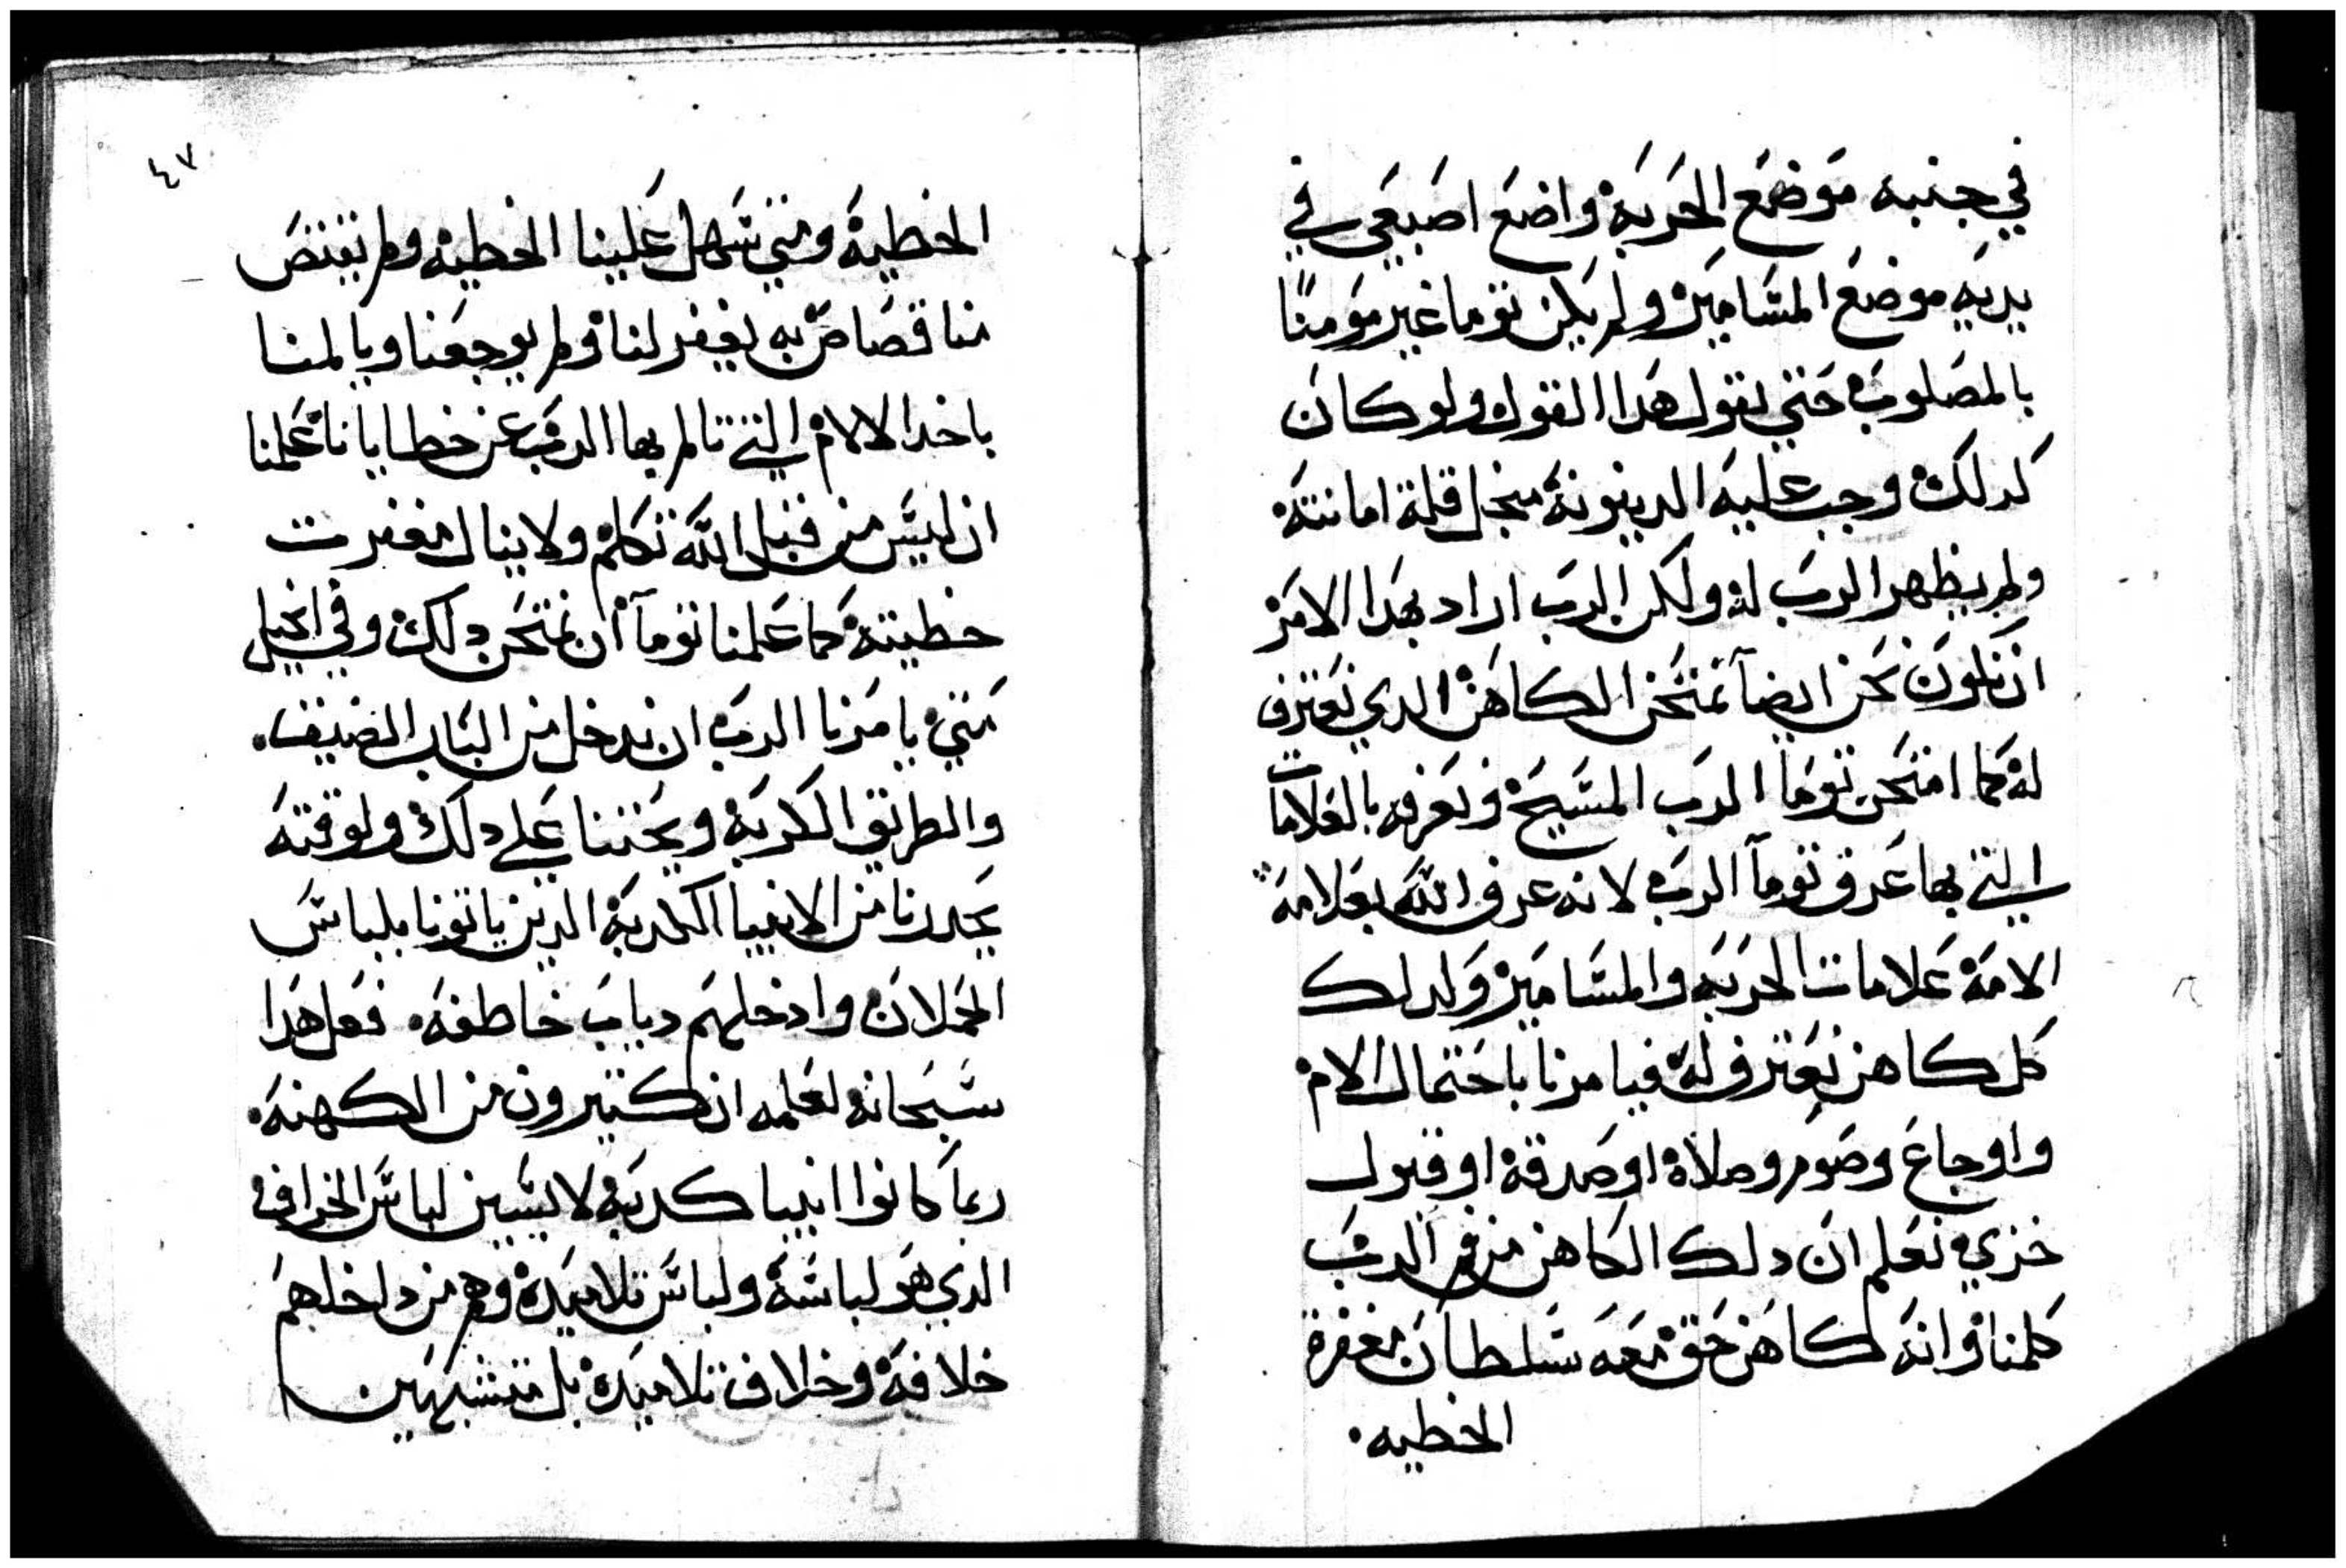 في جنبه موضع الحربه واضع اصبعي في
يديه موضع المسامير ولم يكن توما غير مومنًا
بالمصلوب حتي يقول هدا القول ولو كان
كدلك وجب عليه الدينونة منجل قلة امانته
ولم يظهر الرب له ولكن الرب اراد بهدا الامر
ان نكون نحن ايضآ نمتحن الكاهن الدي نعترف
له كما امتحن توما الرب المسيح ونعرفه بالعلامات
التي بها عرف تومآ الرب لانه عرف الله بعلامة
الامه علامات الحربه والمسامير ولدلك
كل كاهن نعترف له فيامرنا باحتمال الام
واوجاع وصوم وصلاة او صدقة او قبول
خزي نعلم ان دلك الكاهن من فم الرب
كلمنا وانه كاهن حق معه سلطان مغفرة
الخطيه٠
٤٧
الخطية ومتي سهل علينا الخطيه ولم يقتض
منا قصاص به يغفر لنا ولم يوجعنا ويالمنا
باخد الالام التي تالم بها الرب عن خطايانا علمنا
ان ليس من قبل الله تكلم ولا ينال مغفرت
خطيته كما علمنا تومآ ان نمتحن دلك وفي انجيل
متي يامرنا الرب ان ندخل من الباب الضيف٠
والطريق الكربه ويحتنا علي دلك ولوقته
يحدرنا من الانبيا الكدبه الدين ياتونا بلباس
الحملان وادخلهم دياب خاطفه٠ فعل هدا
سبحانه لعلمه ان كتيرون من الكهنه٠
ربما كانوا انبيا كدبه لابسين لباس الخراف
الدي هو لباسه ولباس تلاميده وهم من داخلهم
خلافه وخلاف تلاميده بل متشبهين